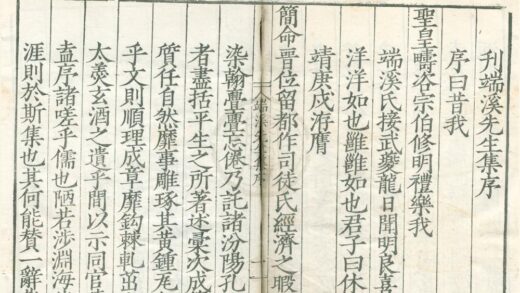 刋端溪先生集序
序曰昔我
聖皇疇咨宗伯修明禮樂我
端溪氏接武夔龍日聞明良喜
洋洋如也雝雝如也君子曰休
靖庚戌洊膺
簡命晉位留都作司徒氏經濟之暇
端溪先生集序
染翰亹亹忘倦乃託諸汾陽孔
者盡括平生之所著述彚次成
質任自然靡事雕琢其黃鍾
乎文則順理成章靡鈎棘軋茁
太羮玄酒之遺乎間以示同官
盍序諸嗟乎儒也陋若涉淵海
涯則於斯集也其何能賛一辭